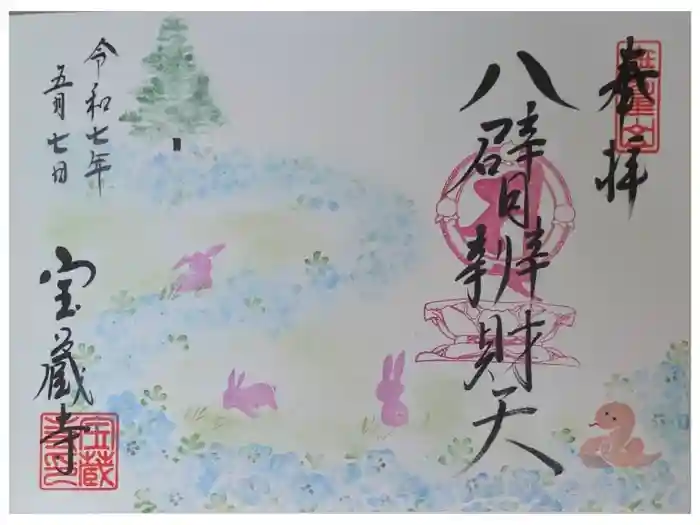 奉拝
八臂辨財天
令和七年
五月七日
宝蔵寺